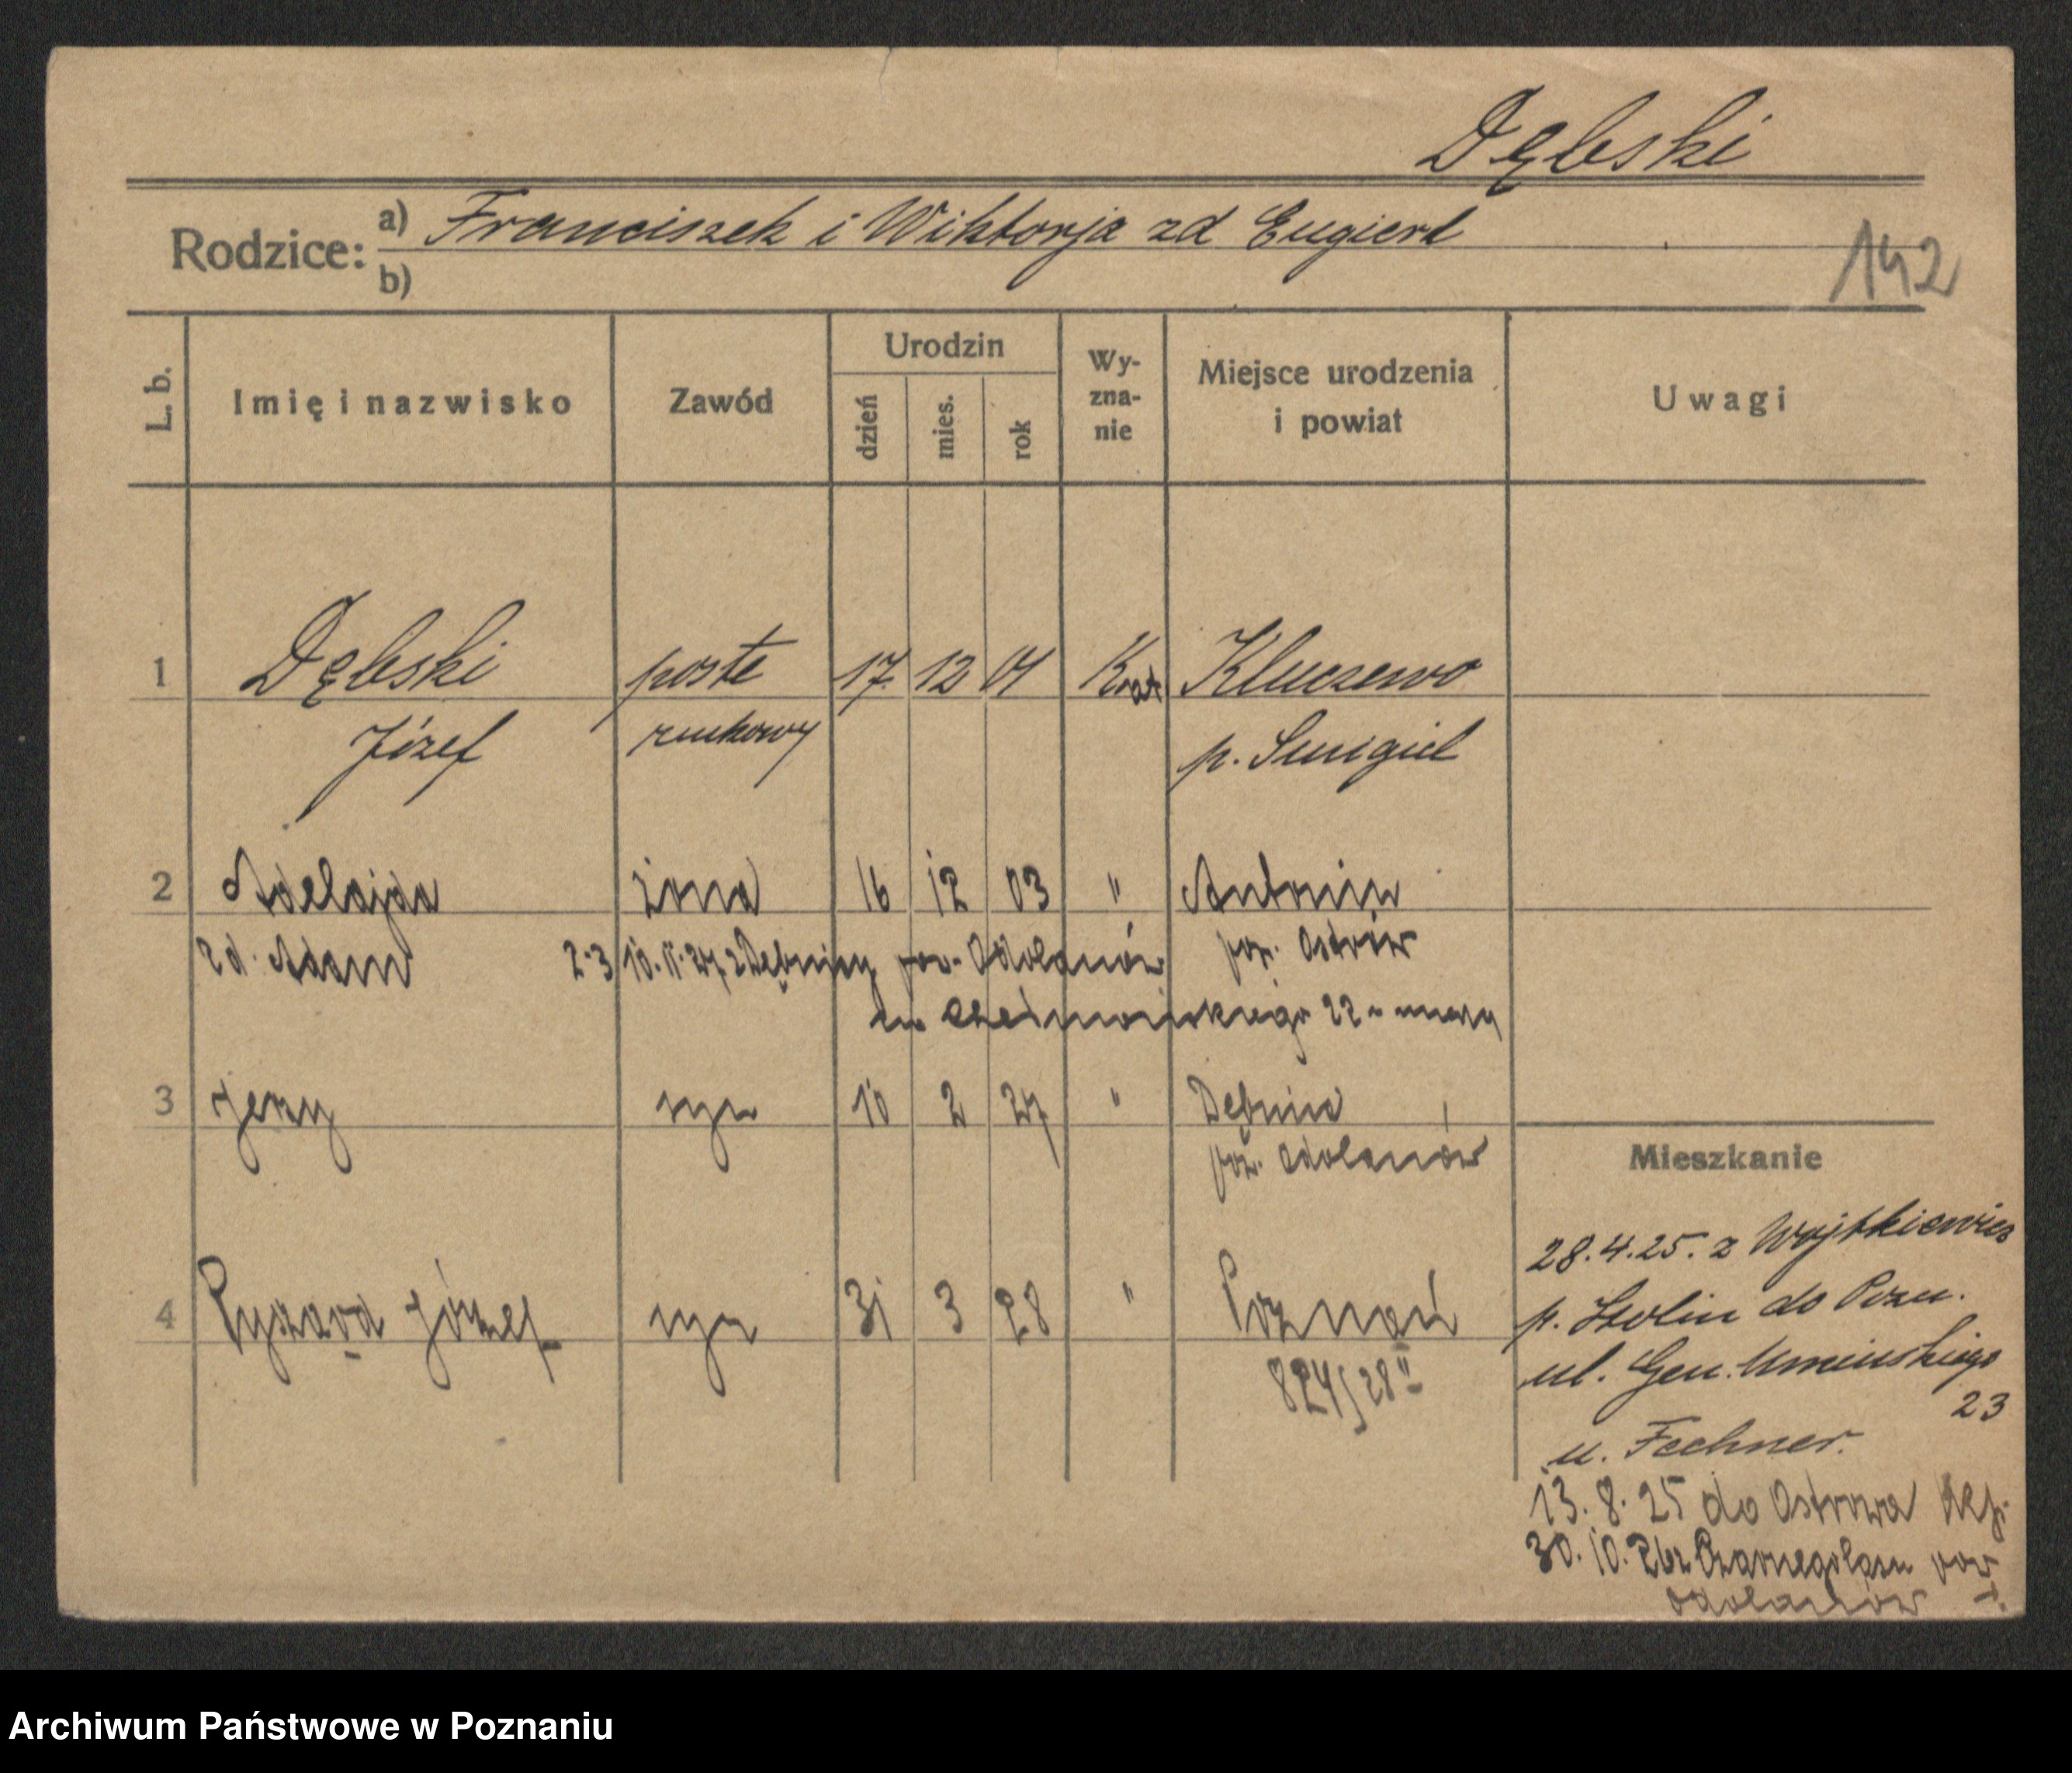 Dębski
Rodzice: a) Franciszek i Wiktorja zd Eugiert
b)
142
L. b.
Imię i nazwisko
Zawód
Urodzin
dzień
mies.
rok
Wy-
zna-
nie
Miejsce urodzenia
i powiat
Uwagi
1 Dębski poste 17 12 04 Kat Kluczewo
Józef runkowy p. Smigiel
2 Adelajda żona 16 12 03 " Antonin
zd. Adam pow. Ostrów
2-3 10. 11. 27 z Dębnicy pow. Odolanów
22
3 Jerzy syn 10 2 27 " Dębnica
pow. Odolanów
4 Ryszard Józef syn 31 3 28 " Poznań
824/28"
Mieszkanie
28.4.25. z Wojtkiewicz
p. Stolin do Pozn.
ul. Gen. Umińskiego
23
u. Fechner.
13. 8. 25 do Ostrowa
30. 10. 26 z Czarnegolasu pow
Odolanów
Archiwum Państwowe w Poznaniu